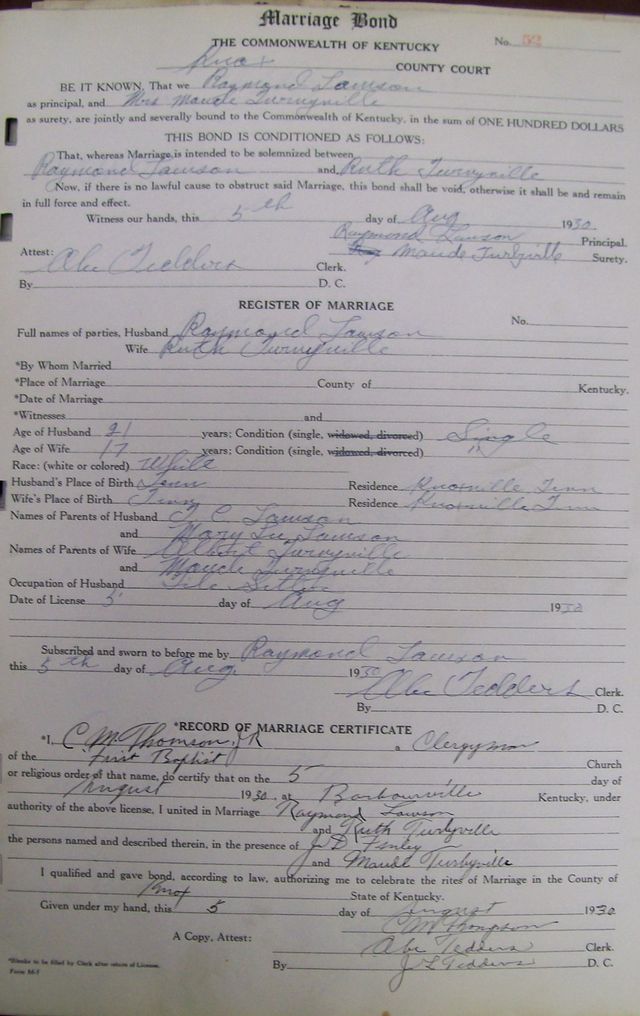 Marriage Bond
THE COMMONWEALTH OF KENTUCKY No. 52
Knox COUNTY COURT
BE IT KNOWN, That we Raymond Lawson
as principal, and Mrs Maude Turnyville
as surety, are jointly and severally bound to the Commonwealth of Kentucky, in the sum of ONE HUNDRED DOLLARS
THIS BOND IS CONDITIONED AS FOLLOWS:
That, whereas Marriage is intended to be solemnized between
Raymond Lawson and Ruth Turnyville
Now, if there is no lawful cause to obstruct said Marriage, this bond shall be void, otherwise it shall be and remain
in full force and effect.
Witness our hands, this 5th day of Aug 1930
Raymond Lawson Principal.
Attest: Maude Turbyville Surety.
Abe Tedders Clerk.
By D. C.
REGISTER OF MARRIAGE
No.
Full names of parties, Husband Raymond Lawson
Wife Ruth Turnyville
*By Whom Married
*Place of Marriage County of Kentucky.
*Date of Marriage
*Witnesses and
Age of Husband 21 years; Condition (single, widowed, divorced) Single
Age of Wife 17 years; Condition (single, widowed, divorced) "
Race: (white or colored) White
Husband's Place of Birth Tenn Residence Knoxville Tenn
Wife's Place of Birth Tenn Residence Knoxville Tenn
Names of Parents of Husband C Lawson
and Mary Lee Lawson
Names of Parents of Wife Albert Turnyville
and Maude Turnyville
Occupation of Husband Tile Setter
Date of License 5 day of Aug 1930
Subscribed and sworn to before me by Raymond Lawson
this 5th day of Aug. 1930
Abe Tedders Clerk.
By D. C.
*RECORD OF MARRIAGE CERTIFICATE
*I, C M Thomson, JR a Clergyman
of the First Baptist Church
or religious order of that name, do certify that on the 5 day of
August 1930, at Barbourville Kentucky, under
authority of the above license, I united in Marriage Raymond Lawson
and Ruth Turbyville
the persons named and described therein, in the presence of J D Finley
and Maude Turbyville
I qualified and gave bond, according to law, authorizing me to celebrate the rites of Marriage in the County of
Knox State of Kentucky.
Given under my hand, this 5 day of August 1930
C M Thompson
A Copy, Attest: Abe Tedders Clerk.
By J L Tedders D. C.
*Blanks to be filled by Clerk after return of License.